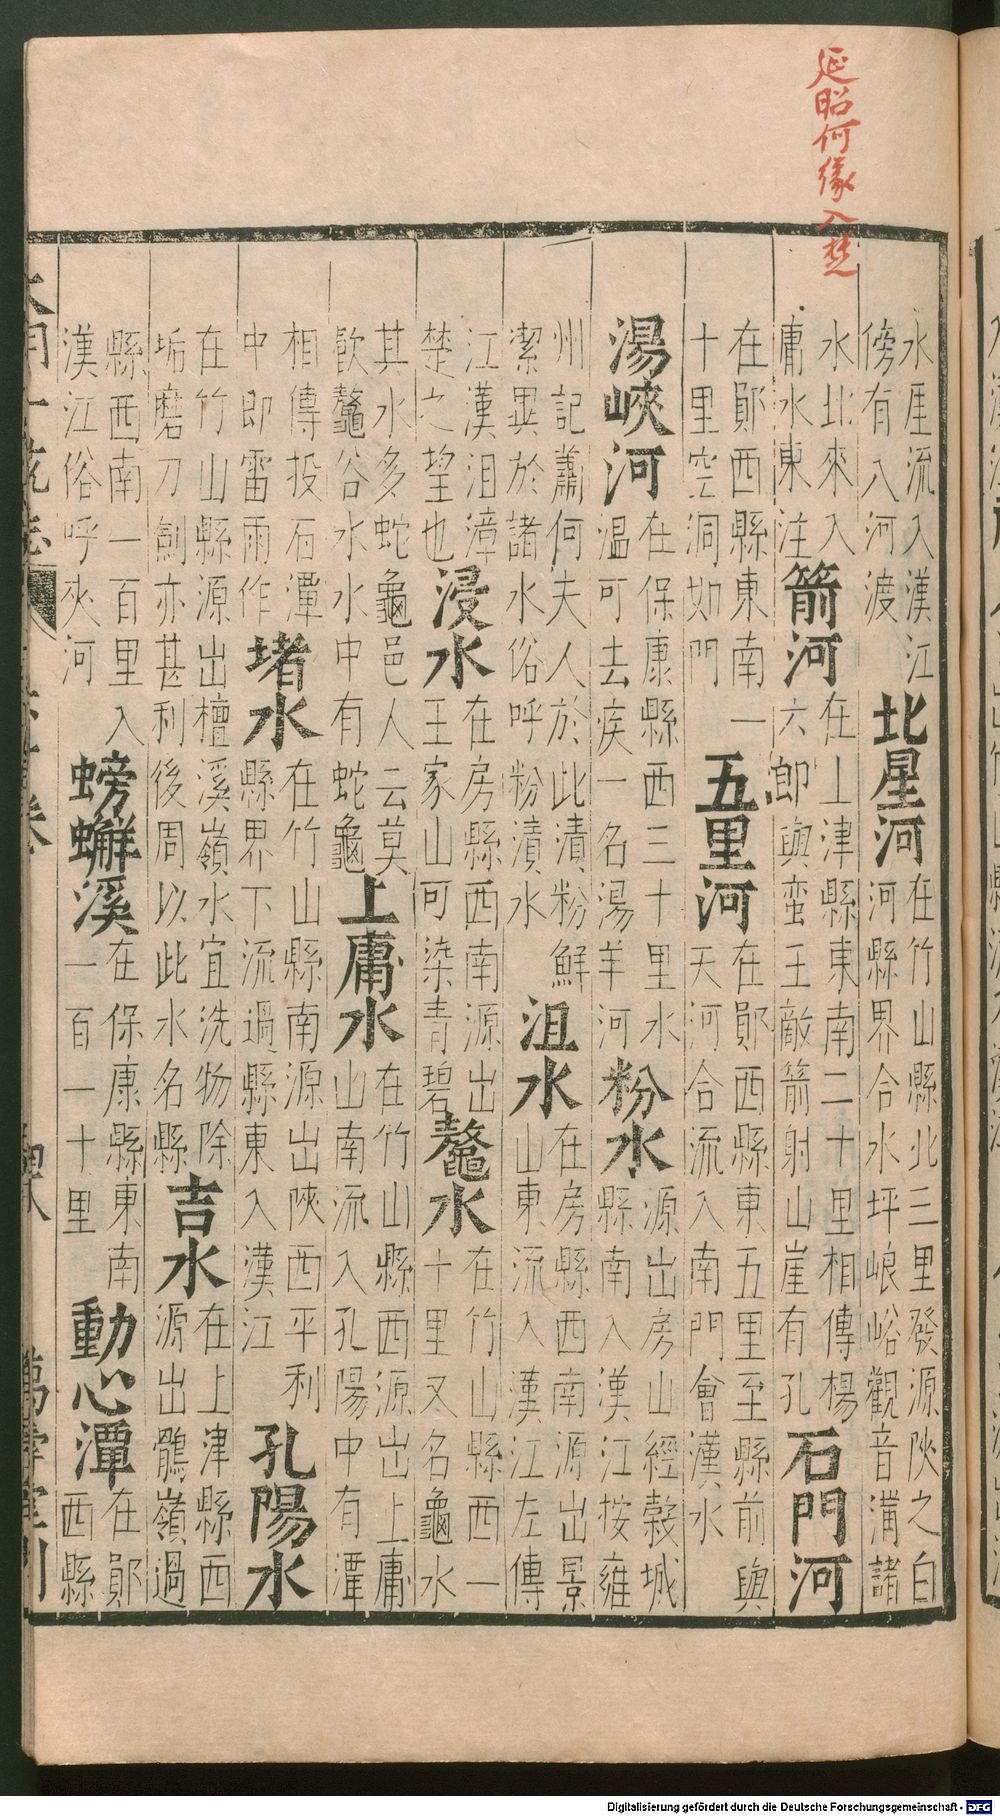 延昭何緣入楚
永厓流入漢江
傍有入河渡
北星河
在竹山縣北三里發源陜之白
河縣界合水坪峎峪觀音溝諸
水北來入
庸水東注
箭河
在上津縣東南二十里相傳楊
六郎與蛮王敵箭射山崖有孔
石門河
在鄖西縣東南一
十里空洞如門
五里河
在鄖西縣東五里至縣前與
天河合流入南門會漢水
湯峽河
在保康縣西三十里水
温可去疾一名湯羊河
粉水
源出房山經榖城
縣南入漢江按雍
州記蕭何夫人於此漬粉鮮
潔異於諸水俗呼粉漬水
沮水
在房縣西南源出景
山東流入漢江左傳
江漢沮漳
楚之望也
浸水
在房縣西南源出
王家山可染青碧
鼇水
在竹山縣西一
十里又名龜水
其水多蛇龜邑人云莫
㱃鼇谷水水中有蛇龜
上庸水
在竹山縣西源出上庸
山南流入孔陽中有潭
相傳投石潭
中即雷雨作
堵水
在竹山縣南源出陜西平利
縣界下流過縣東入漢江
孔陽水
在竹山縣源出檀溪嶺水宜洗物除
垢磨刀劍亦甚利後周以此水名縣
吉水
在上津縣西
源出鶻嶺過
縣西南一百里入
漢江俗呼夾河
螃蠏溪
在保康縣東南
一百一十里
動心潭
在鄖
西縣
Digitalisierung gefördert durch die Deutsche Forschungsgemeinschaft - DFG